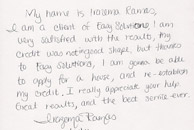 My name is Irazema Ramos,
I am a client of Eazy Solutions I am
very satisfied with the results, my
credit was not good shape, but thanks
to Eazy Solutions, I am gonna be able
to apply for a house, and re-establish
my credit. I really appreciate your help.
Great results, and the best service ever.
Irazema Ramos